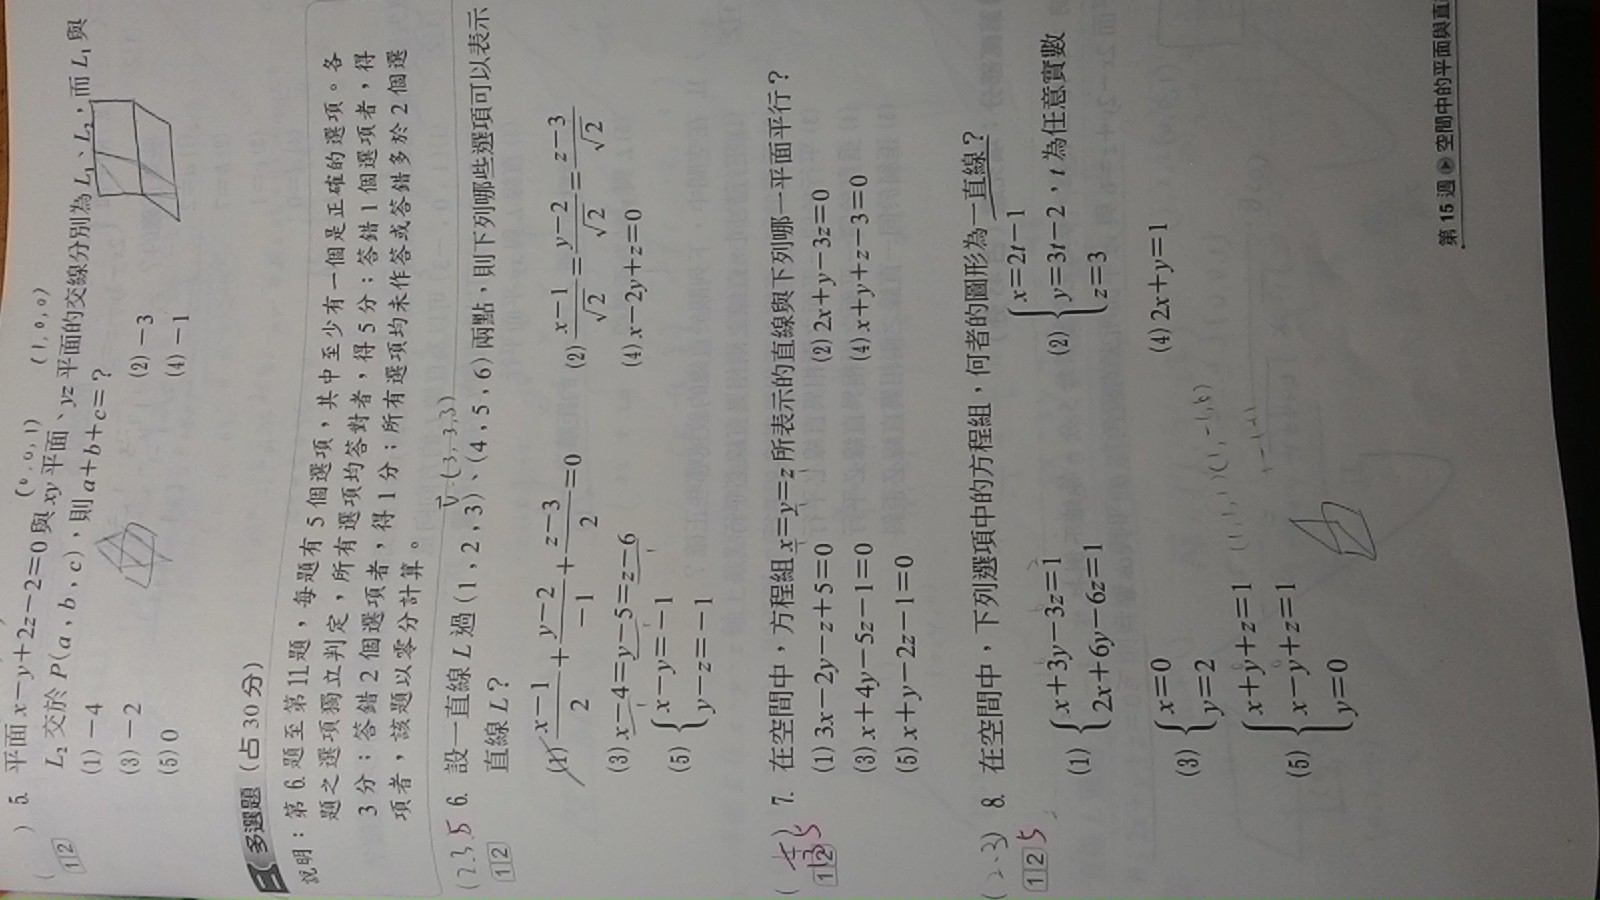 (0,0,1) (1,0,0)
( ) 5. 平面 x－y＋2z－2＝0 與 xy 平面、yz 平面的交線分別為 L₁、L₂，而 L₁ 與
12 L₂ 交於 P(a，b，c)，則 a＋b＋c＝？
(1) －4 (2) －3
(3) －2 (4) －1
(5) 0
二 多選題 (占 30 分)
說明：第 6 題至第 11 題，每題有 5 個選項，其中至少有一個是正確的選項。各
題之選項獨立判定，所有選項均答對者，得 5 分；答錯 1 個選項者，得
3 分；答錯 2 個選項者，得 1 分；所有選項均未作答或答錯多於 2 個選
項者，該題以零分計算。
V (3,3,3)
(2.3.5 6. 設一直線 L 過 (1，2，3)、(4，5，6) 兩點，則下列哪些選項可以表示
12 直線 L？
(1) (x－1)/2＋(y－2)/－1＋(z－3)/2＝0 (2) (x－1)/√2＝(y－2)/√2＝(z－3)/√2
(3) x－4＝y－5＝z－6 (4) x－2y＋z＝0
(5) { x－y＝－1
y－z＝－1
( 5) 7. 在空間中，方程組 x＝y＝z 所表示的直線與下列哪一平面平行？
12 5 (1) 3x－2y－z＋5＝0 (2) 2x＋y－3z＝0
(3) x＋4y－5z－1＝0 (4) x＋y＋z－3＝0
(5) x＋y－2z－1＝0
(2.3) 8. 在空間中，下列選項中的方程組，何者的圖形為一直線？
12 5 (1) { x＋3y－3z＝1
2x＋6y－6z＝1
(2) { x＝2t－1
y＝3t－2，t 為任意實數
z＝3
(3) { x＝0
y＝2
(4) 2x＋y＝1
(5) { x＋y＋z＝1
x－y＋z＝1
y＝0
第 15 週 空間中的平面與直